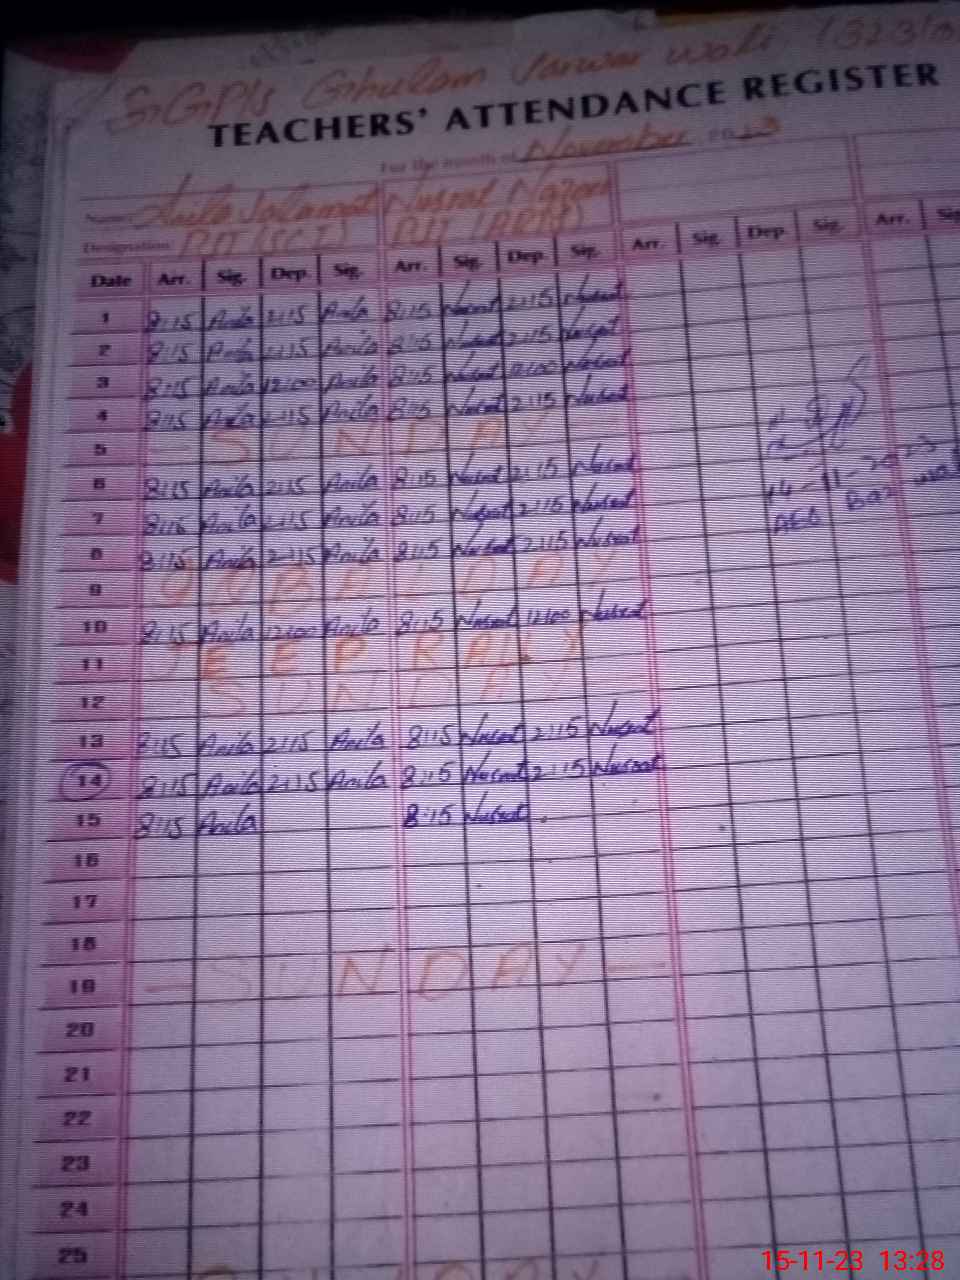 G.G.P/S Ghulam Sarwar wali (323
TEACHERS' ATTENDANCE REGISTER
For the month of November 2023
Name Anila Salamat Nusrat Nazeer
Designation PJT (SCI) PJT (ARM)
Date Arr. Sig. Dep. Sig. Arr. Sig. Dep. Sig. Arr. Sig. Dep. Sig. Arr. Sig
1 8:15 Anila 2:15 Anila 8:15 Nusrat 2:15 Nusrat
2 8:15 Anila 2:15 Anila 8:15 Nusrat 2:15 Nusrat
3 8:15 Anila 12:00 Anila 8:15 Nusrat 12:00 Nusrat
4 8:15 Anila 2:15 Anila 8:15 Nusrat 2:15 Nusrat
5 - SUNDAY -
6 8:15 Anila 2:15 Anila 8:15 Nusrat 2:15 Nusrat
14-11-2023
7 8:15 Anila 2:15 Anila 8:15 Nusrat 2:15 Nusrat
AEO
8 8:15 Anila 2:15 Anila 8:15 Nusrat 2:15 Nusrat
9 DAY
10 8:15 Anila 12:00 Anila 8:15 Nusrat 12:00 Nusrat
11 JEEP RALLY
12 SUNDAY
13 8:15 Anila 2:15 Anila 8:15 Nusrat 2:15 Nusrat
14 8:15 Anila 2:15 Anila 8:15 Nusrat 2:15 Nusrat
15 8:15 Anila 8:15 Nusrat
16
17
18
19 - SUNDAY -
20
21
22
23
24
25
15-11-23 13:28